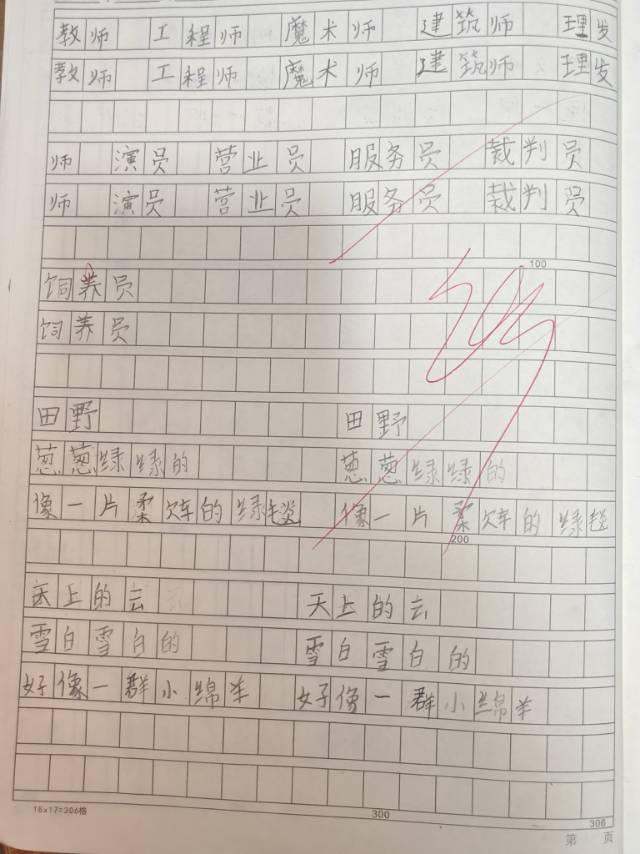 教师 工程师 魔术师 建筑师 理发
教师 工程师 魔术师 建筑师 理发
师 演员 营业员 服务员 裁判员
师 演员 营业员 服务员 裁判员
100
饲养员
饲养员
田野 田野
葱葱绿绿的 葱葱绿绿的
像一片柔软的绿毯 像一片柔软的绿毯
200
天上的云 天上的云
雪白雪白的 雪白雪白的
好像一群小绵羊 好像一群小绵羊
16×17=306格 300 306
第 页